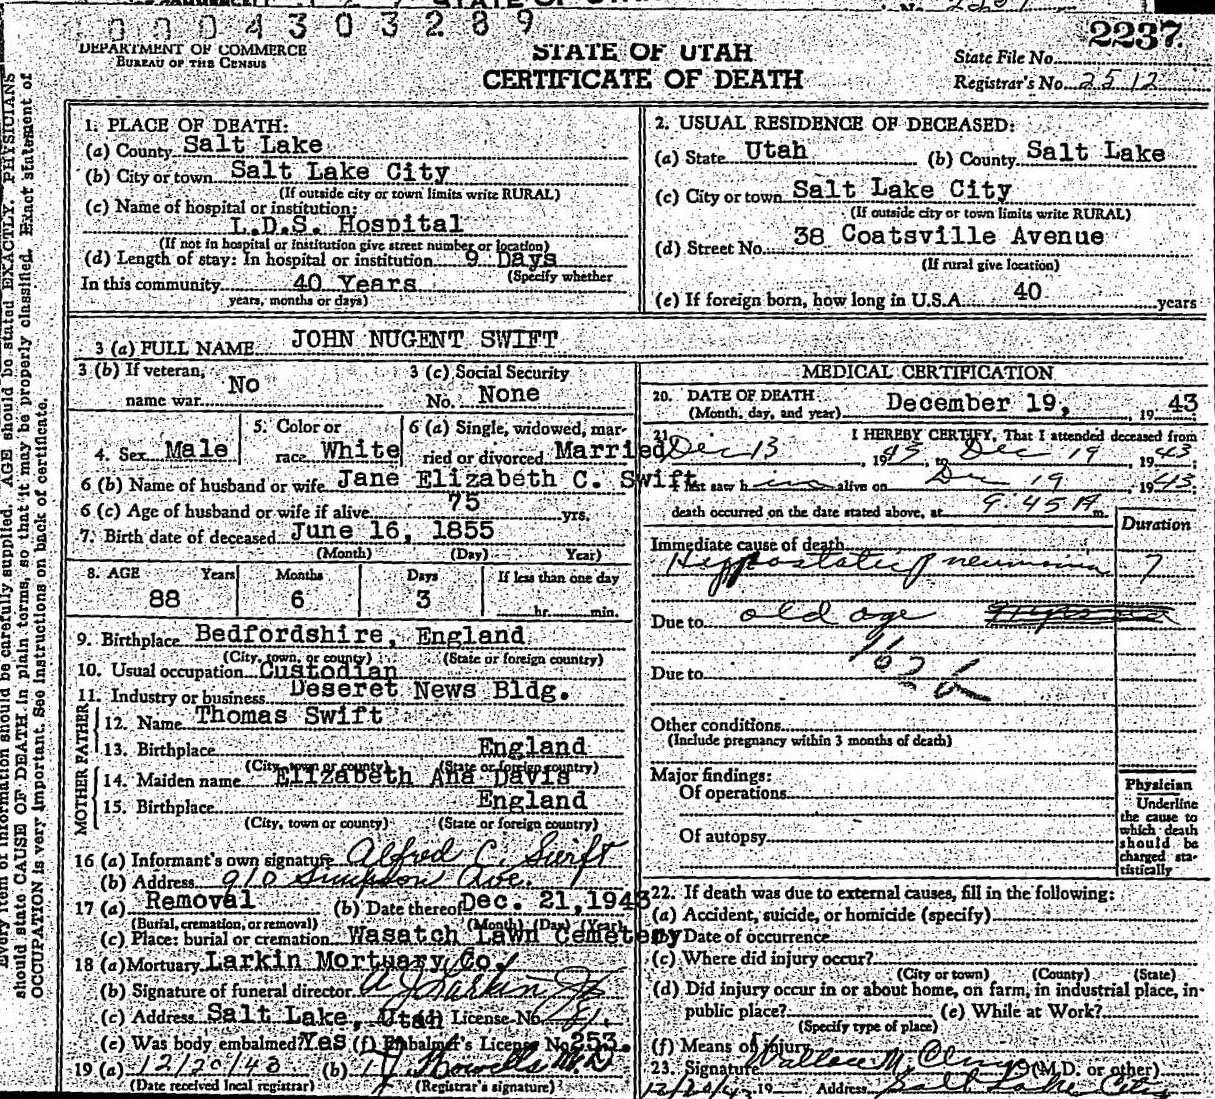 0004303289
DEPARTMENT OF COMMERCE
BUREAU OF THE CENSUS
STATE OF UTAH
CERTIFICATE OF DEATH
2237
State File No.
Registrar's No. 2512
Every item of information should be carefully supplied. AGE should be stated EXACTLY. PHYSICIANS
should state CAUSE OF DEATH in plain terms, so that it may be properly classified. Exact statement of
OCCUPATION is very important. See instructions on back of certificate.
1. PLACE OF DEATH:
(a) County Salt Lake
(b) City or town Salt Lake City
(If outside city or town limits write RURAL)
(c) Name of hospital or institution:
L.D.S. Hospital
(If not in hospital or institution give street number or location)
(d) Length of stay: In hospital or institution 9 Days
(Specify whether
In this community 40 Years
years, months or days)
2. USUAL RESIDENCE OF DECEASED:
(a) State Utah (b) County Salt Lake
(c) City or town Salt Lake City
(If outside city or town limits write RURAL)
(d) Street No. 38 Coatsville Avenue
(If rural give location)
(e) If foreign born, how long in U.S.A. 40 years
3 (a) FULL NAME JOHN NUGENT SWIFT
3 (b) If veteran, name war No
3 (c) Social Security No. None
4. Sex Male
5. Color or race White
6 (a) Single, widowed, married or divorced Married
6 (b) Name of husband or wife Jane Elizabeth C. Swift
6 (c) Age of husband or wife if alive 75 yrs.
7. Birth date of deceased June 16, 1855
(Month) (Day) Year)
8. AGE Years Months Days If less than one day
88 6 3 hr. min.
9. Birthplace Bedfordshire, England
(City, town, or county) (State or foreign country)
10. Usual occupation Custodian
11. Industry or business Deseret News Bldg.
FATHER
12. Name Thomas Swift
13. Birthplace England
(City, town or county) (State or foreign country)
MOTHER
14. Maiden name Elizabeth Ana Davis
15. Birthplace England
(City, town or county) (State or foreign country)
16 (a) Informant's own signature Alfred C. Swift
(b) Address 910 Simpson Ave.
17 (a) Removal (b) Date thereof Dec. 21, 1943
(Burial, cremation, or removal) (Month) (Day) (Year)
(c) Place: burial or cremation Wasatch Lawn Cemetery
18 (a) Mortuary Larkin Mortuary Co.
(b) Signature of funeral director A J Larkin
(c) Address Salt Lake, Utah License No.
(e) Was body embalmed? Yes (f) Embalmer's License No. 253.
19 (a) 12/20/43 (b) M.D.
(Date received local registrar) (Registrar's signature)
MEDICAL CERTIFICATION
20. DATE OF DEATH
(Month, day, and year) December 19, 1943
21. I HEREBY CERTIFY, That I attended deceased from
Dec 13, 1943, to Dec 19, 1943
I last saw him alive on Dec 19, 1943
death occurred on the date stated above, at 9:45 A m.
Duration
Immediate cause of death
Hypostatic pneumonia 7
Due to old age
162 b
Due to
Other conditions
(Include pregnancy within 3 months of death)
Major findings:
Of operations
Of autopsy
Physician
Underline
the cause to
which death
should be
charged sta-
tistically
22. If death was due to external causes, fill in the following:
(a) Accident, suicide, or homicide (specify)
(b) Date of occurrence
(c) Where did injury occur?
(City or town) (County) (State)
(d) Did injury occur in or about home, on farm, in industrial place, in
public place? (e) While at Work?
(Specify type of place)
(f) Means of injury
23. Signature Wallace (M.D. or other)
12/20/43 19 Address Salt Lake City